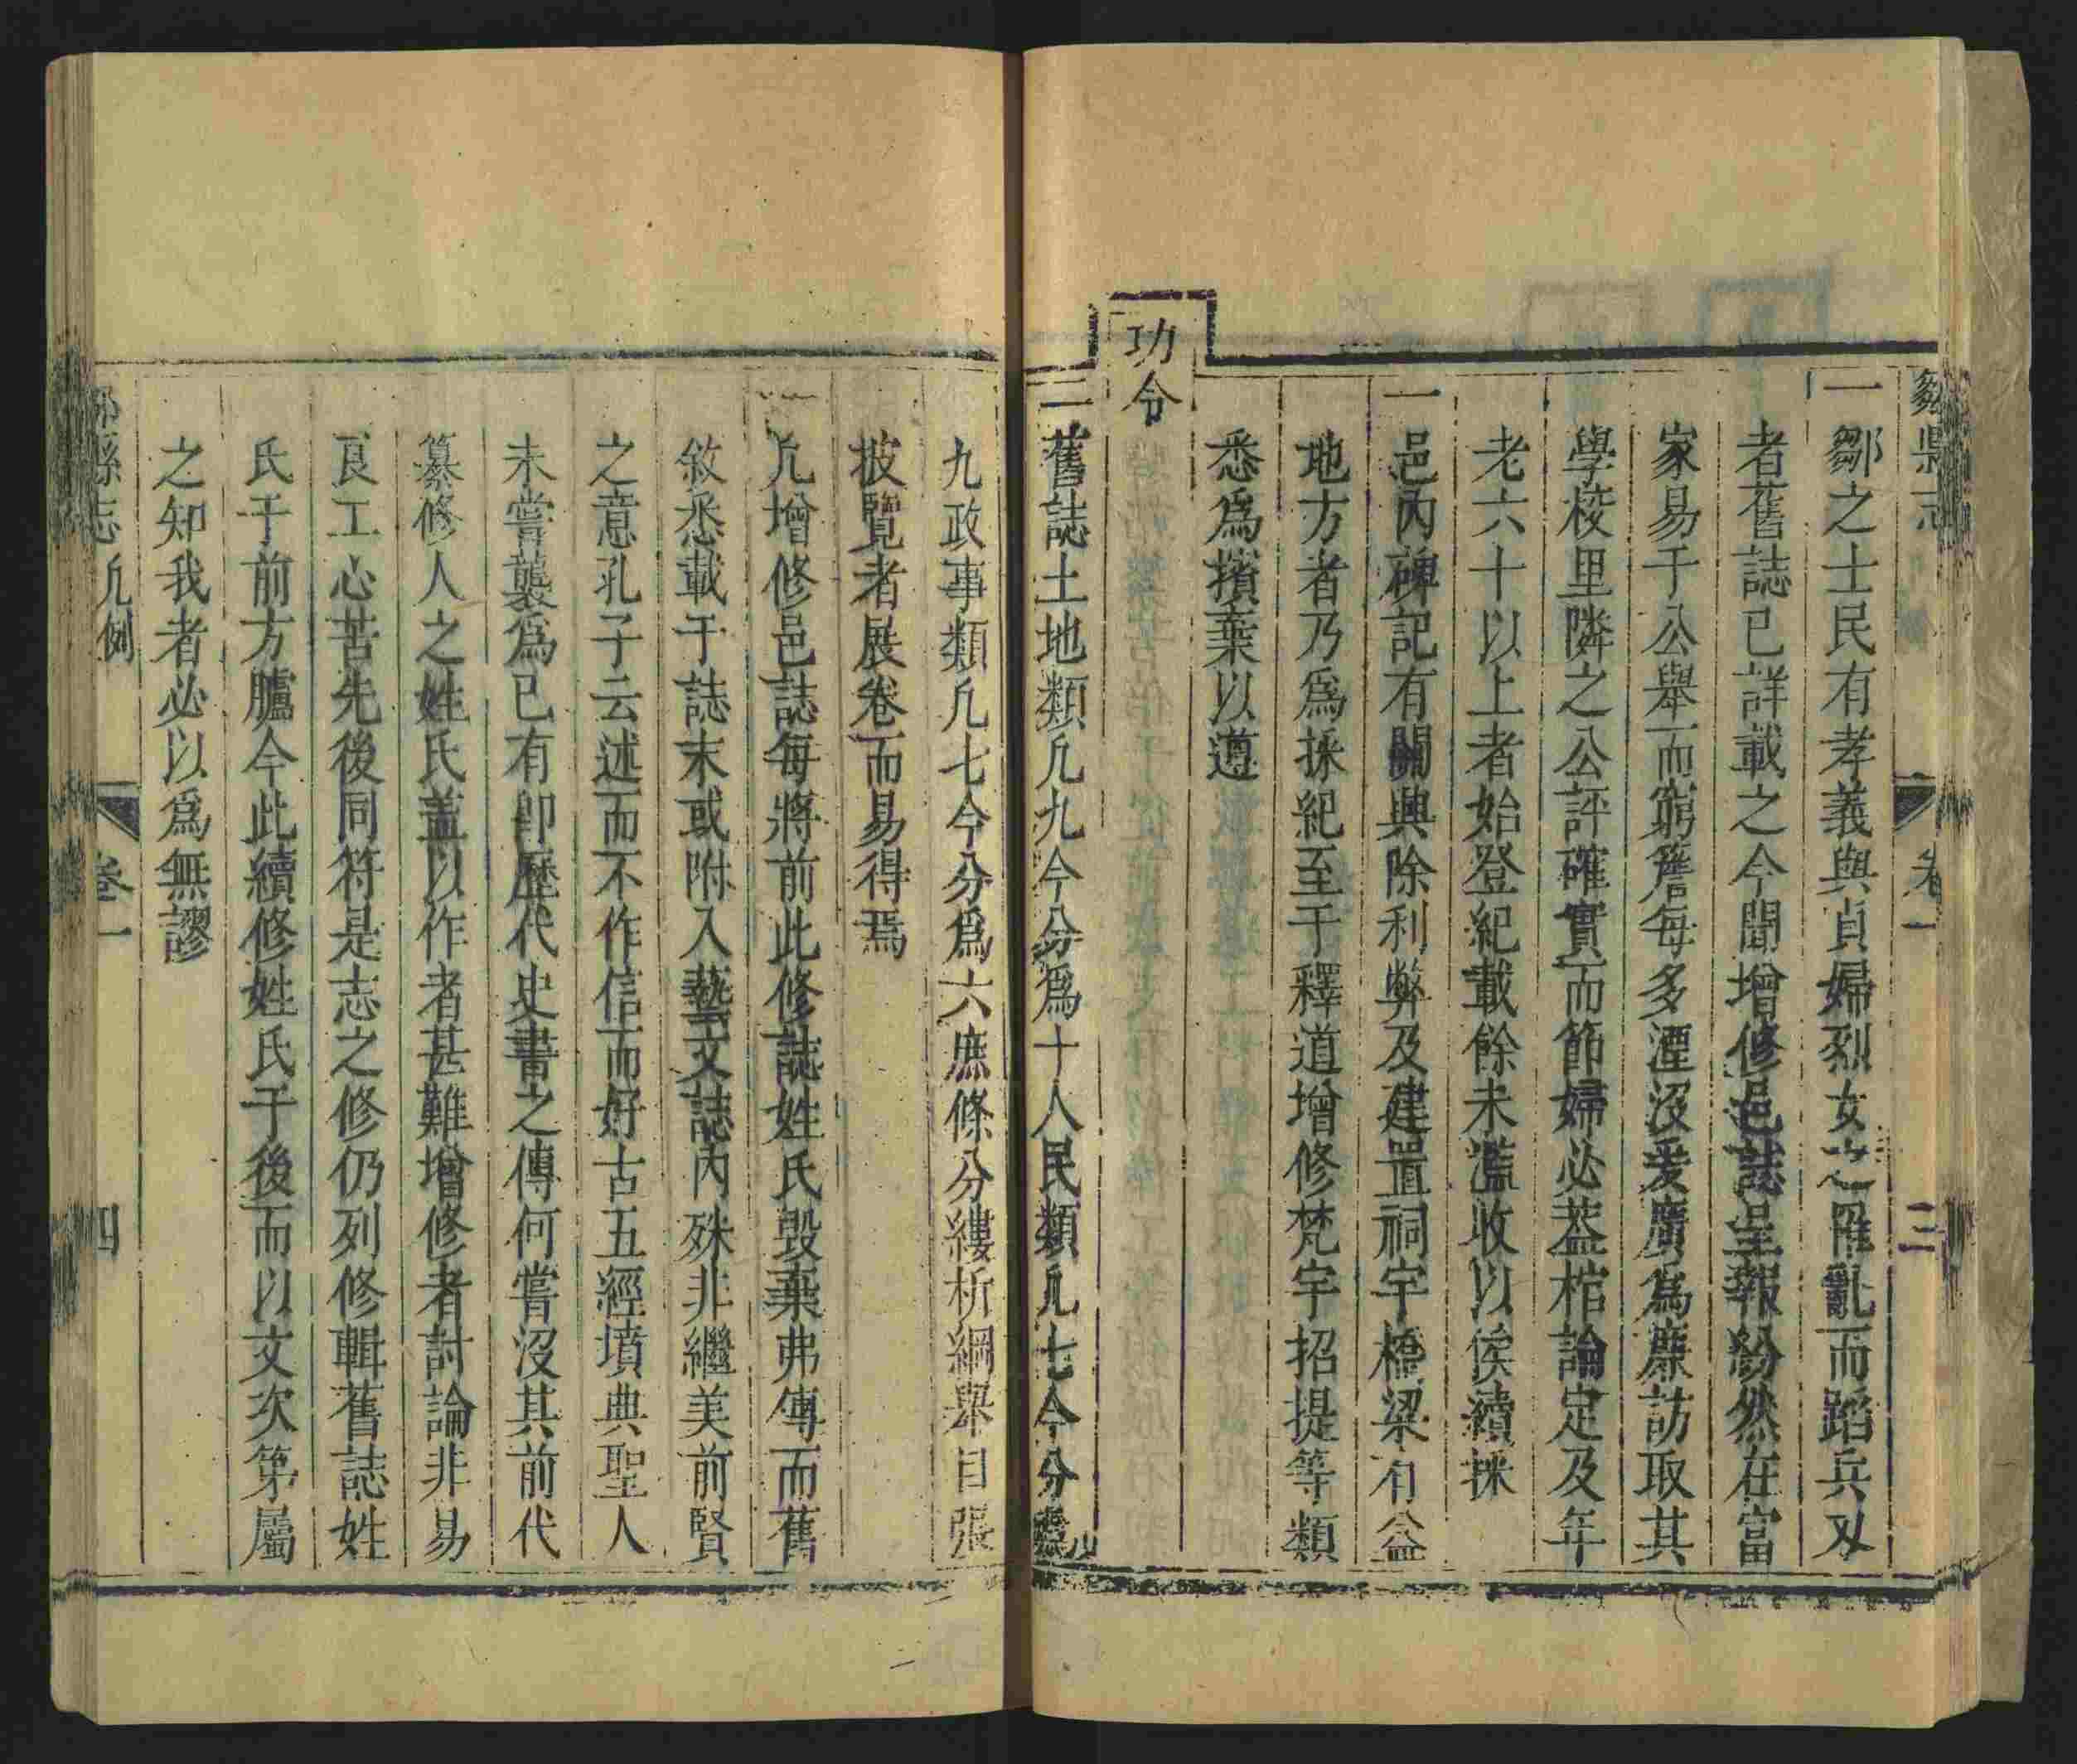 鄒縣志 卷一 三
一鄒之士民有孝義與貞婦烈女之罹亂而蹈兵刃
者舊誌已詳載之今聞增修邑誌呈報紛然在富
家易于公舉而窮簷每多湮沒爰廣爲亷訪取其
學校里隣之公評確實而節婦必葢棺論定及年
老六十以上者始登紀載餘未濫收以俟續採
一邑內碑記有關興除利弊及建置祠宇橋梁有益
地方者乃爲採紀至于釋道增修梵宇招提等類
悉爲擯棄以遵
功令
一舊誌土地類凢九今分爲十人民類凢七今分爲
九政事類凢七今分爲六庶條分縷析綱舉目張
披覽者展卷而易得焉
一凢增修邑誌每將前此修誌姓氏毀棄弗傳而舊
敘悉載于誌末或附入藝文誌內殊非繼美前賢
之意孔子云述而不作信而好古五經墳典聖人
未嘗襲爲已有卽歷代史書之傳何嘗沒其前代
纂修人之姓氏葢以作者甚難增修者討論非易
良工心苦先後同符是志之修仍列修輯舊誌姓
氏于前方臚今此續修姓氏于後而以文次第屬
之知我者必以爲無謬
鄒縣志 凢例 卷一 四